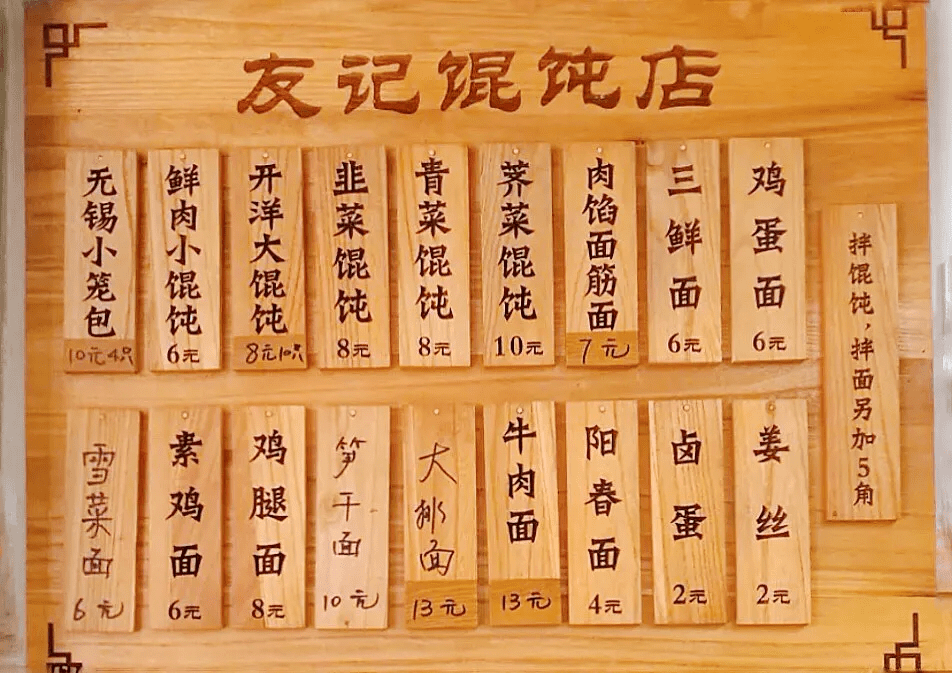 友记馄饨店
无锡小笼包
10元4只
鲜肉小馄饨
6元
开洋大馄饨
8元10只
韭菜馄饨
8元
青菜馄饨
8元
荠菜馄饨
10元
肉馅面筋面
7元
三鲜面
6元
鸡蛋面
6元
拌馄饨,拌面另加5角
雪菜面
6元
素鸡面
6元
鸡腿面
8元
笋干面
10元
大排面
13元
牛肉面
13元
阳春面
4元
卤蛋
2元
姜丝
2元